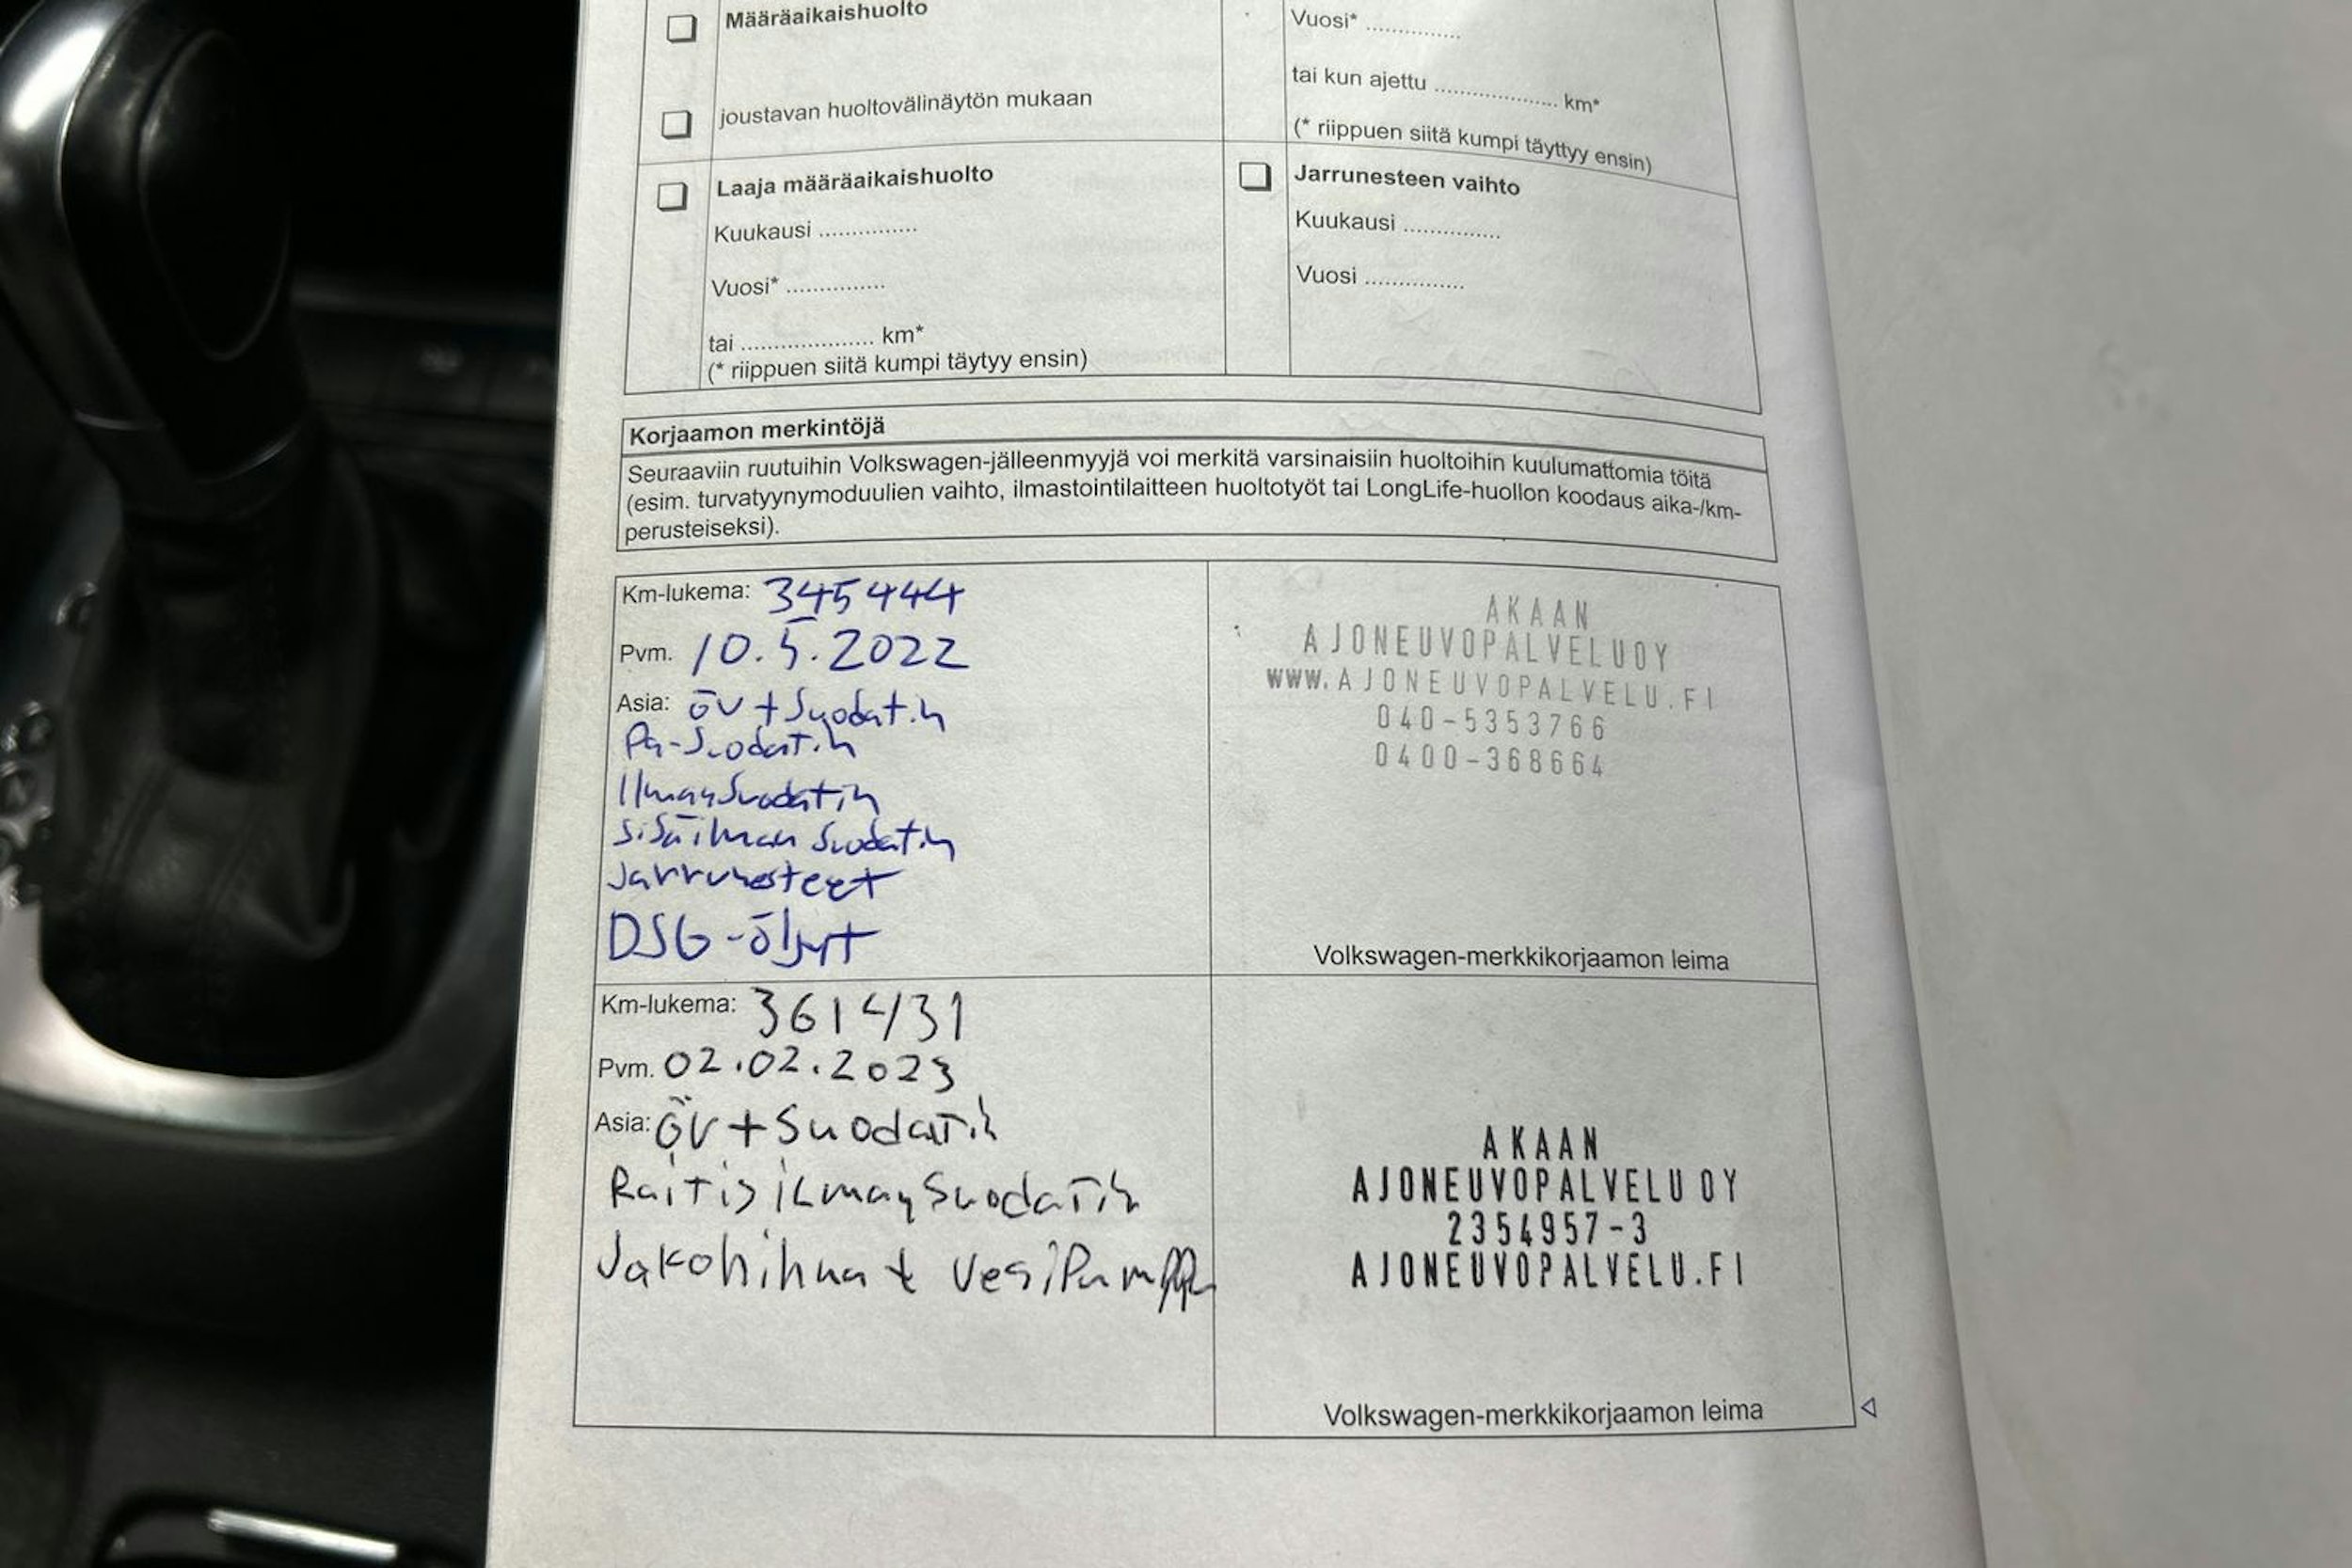 Määräaikaishuolto
joustavan huoltovälinäytön mukaan
Vuosi* ..............
tai kun ajettu .................. km*
(* riippuen siitä kumpi täyttyy ensin)
Laaja määräaikaishuolto
Kuukausi ...............
Vuosi* ...............
tai .................... km*
(* riippuen siitä kumpi täytyy ensin)
Jarrunesteen vaihto
Kuukausi ...............
Vuosi ...............
Korjaamon merkintöjä
Seuraaviin ruutuihin Volkswagen-jälleenmyyjä voi merkitä varsinaisiin huoltoihin kuulumattomia töitä
(esim. turvatyynymoduulien vaihto, ilmastointilaitteen huoltotyöt tai LongLife-huollon koodaus aika-/km-
perusteiseksi).
Km-lukema: 345444
Pvm. 10.5.2022
Asia: öv + Suodatin
Pa-Suodatin
Ilmansuodatin
Sisäilman Suodatin
Jarrunesteet
DSG-öljyt
AKAAN
AJONEUVOPALVELUOY
WWW.AJONEUVOPALVELU.FI
040-5353766
0400-368664
Volkswagen-merkkikorjaamon leima
Km-lukema: 361431
Pvm. 02.02.2023
Asia: ÖV + Suodatin
Raitisilman Suodatin
Jakohihna + Vesipumppu
AKAAN
AJONEUVOPALVELU OY
2354957-3
AJONEUVOPALVELU.FI
Volkswagen-merkkikorjaamon leima